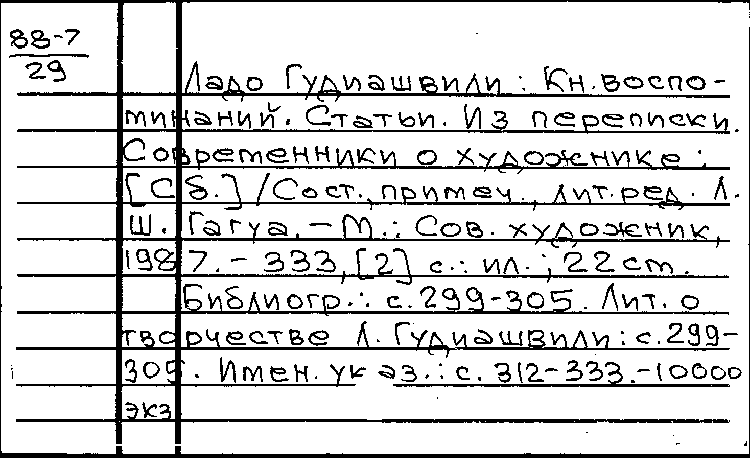 88-7
29
Ладо Гудиашвили: Кн. воспо-
минаний. Статьи. Из переписки.
Современники о художнике:
[Сб.] / Сост., примеч., лит. ред. Л.
Ш. Гагуа. – М.: Сов. художник,
1987. – 333, [2] с.: ил.; 22 cm.
Библиогр.: с. 299-305. Лит. о
творчестве Л. Гудиашвили: с. 299-
305. Имен. указ.: с. 312-333. – 10000
экз